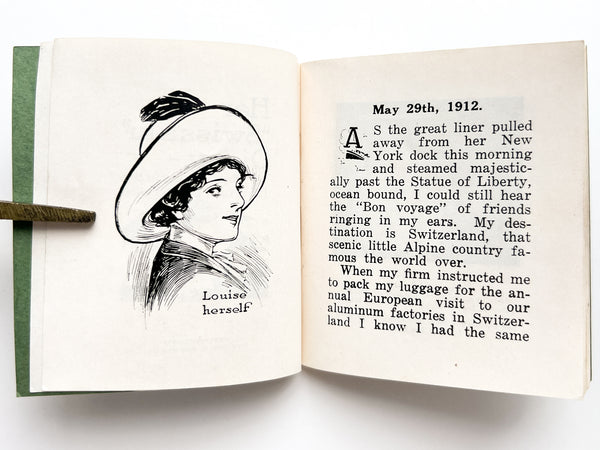 Louise
herself
May 29th, 1912.
AS the great liner pulled
away from her New
York dock this morning
and steamed majestic-
ally past the Statue of Liberty,
ocean bound, I could still hear
the "Bon voyage" of friends
ringing in my ears. My des-
tination is Switzerland, that
scenic little Alpine country fa-
mous the world over.
When my firm instructed me
to pack my luggage for the an-
nual European visit to our
aluminum factories in Switzer-
land I know I had the same